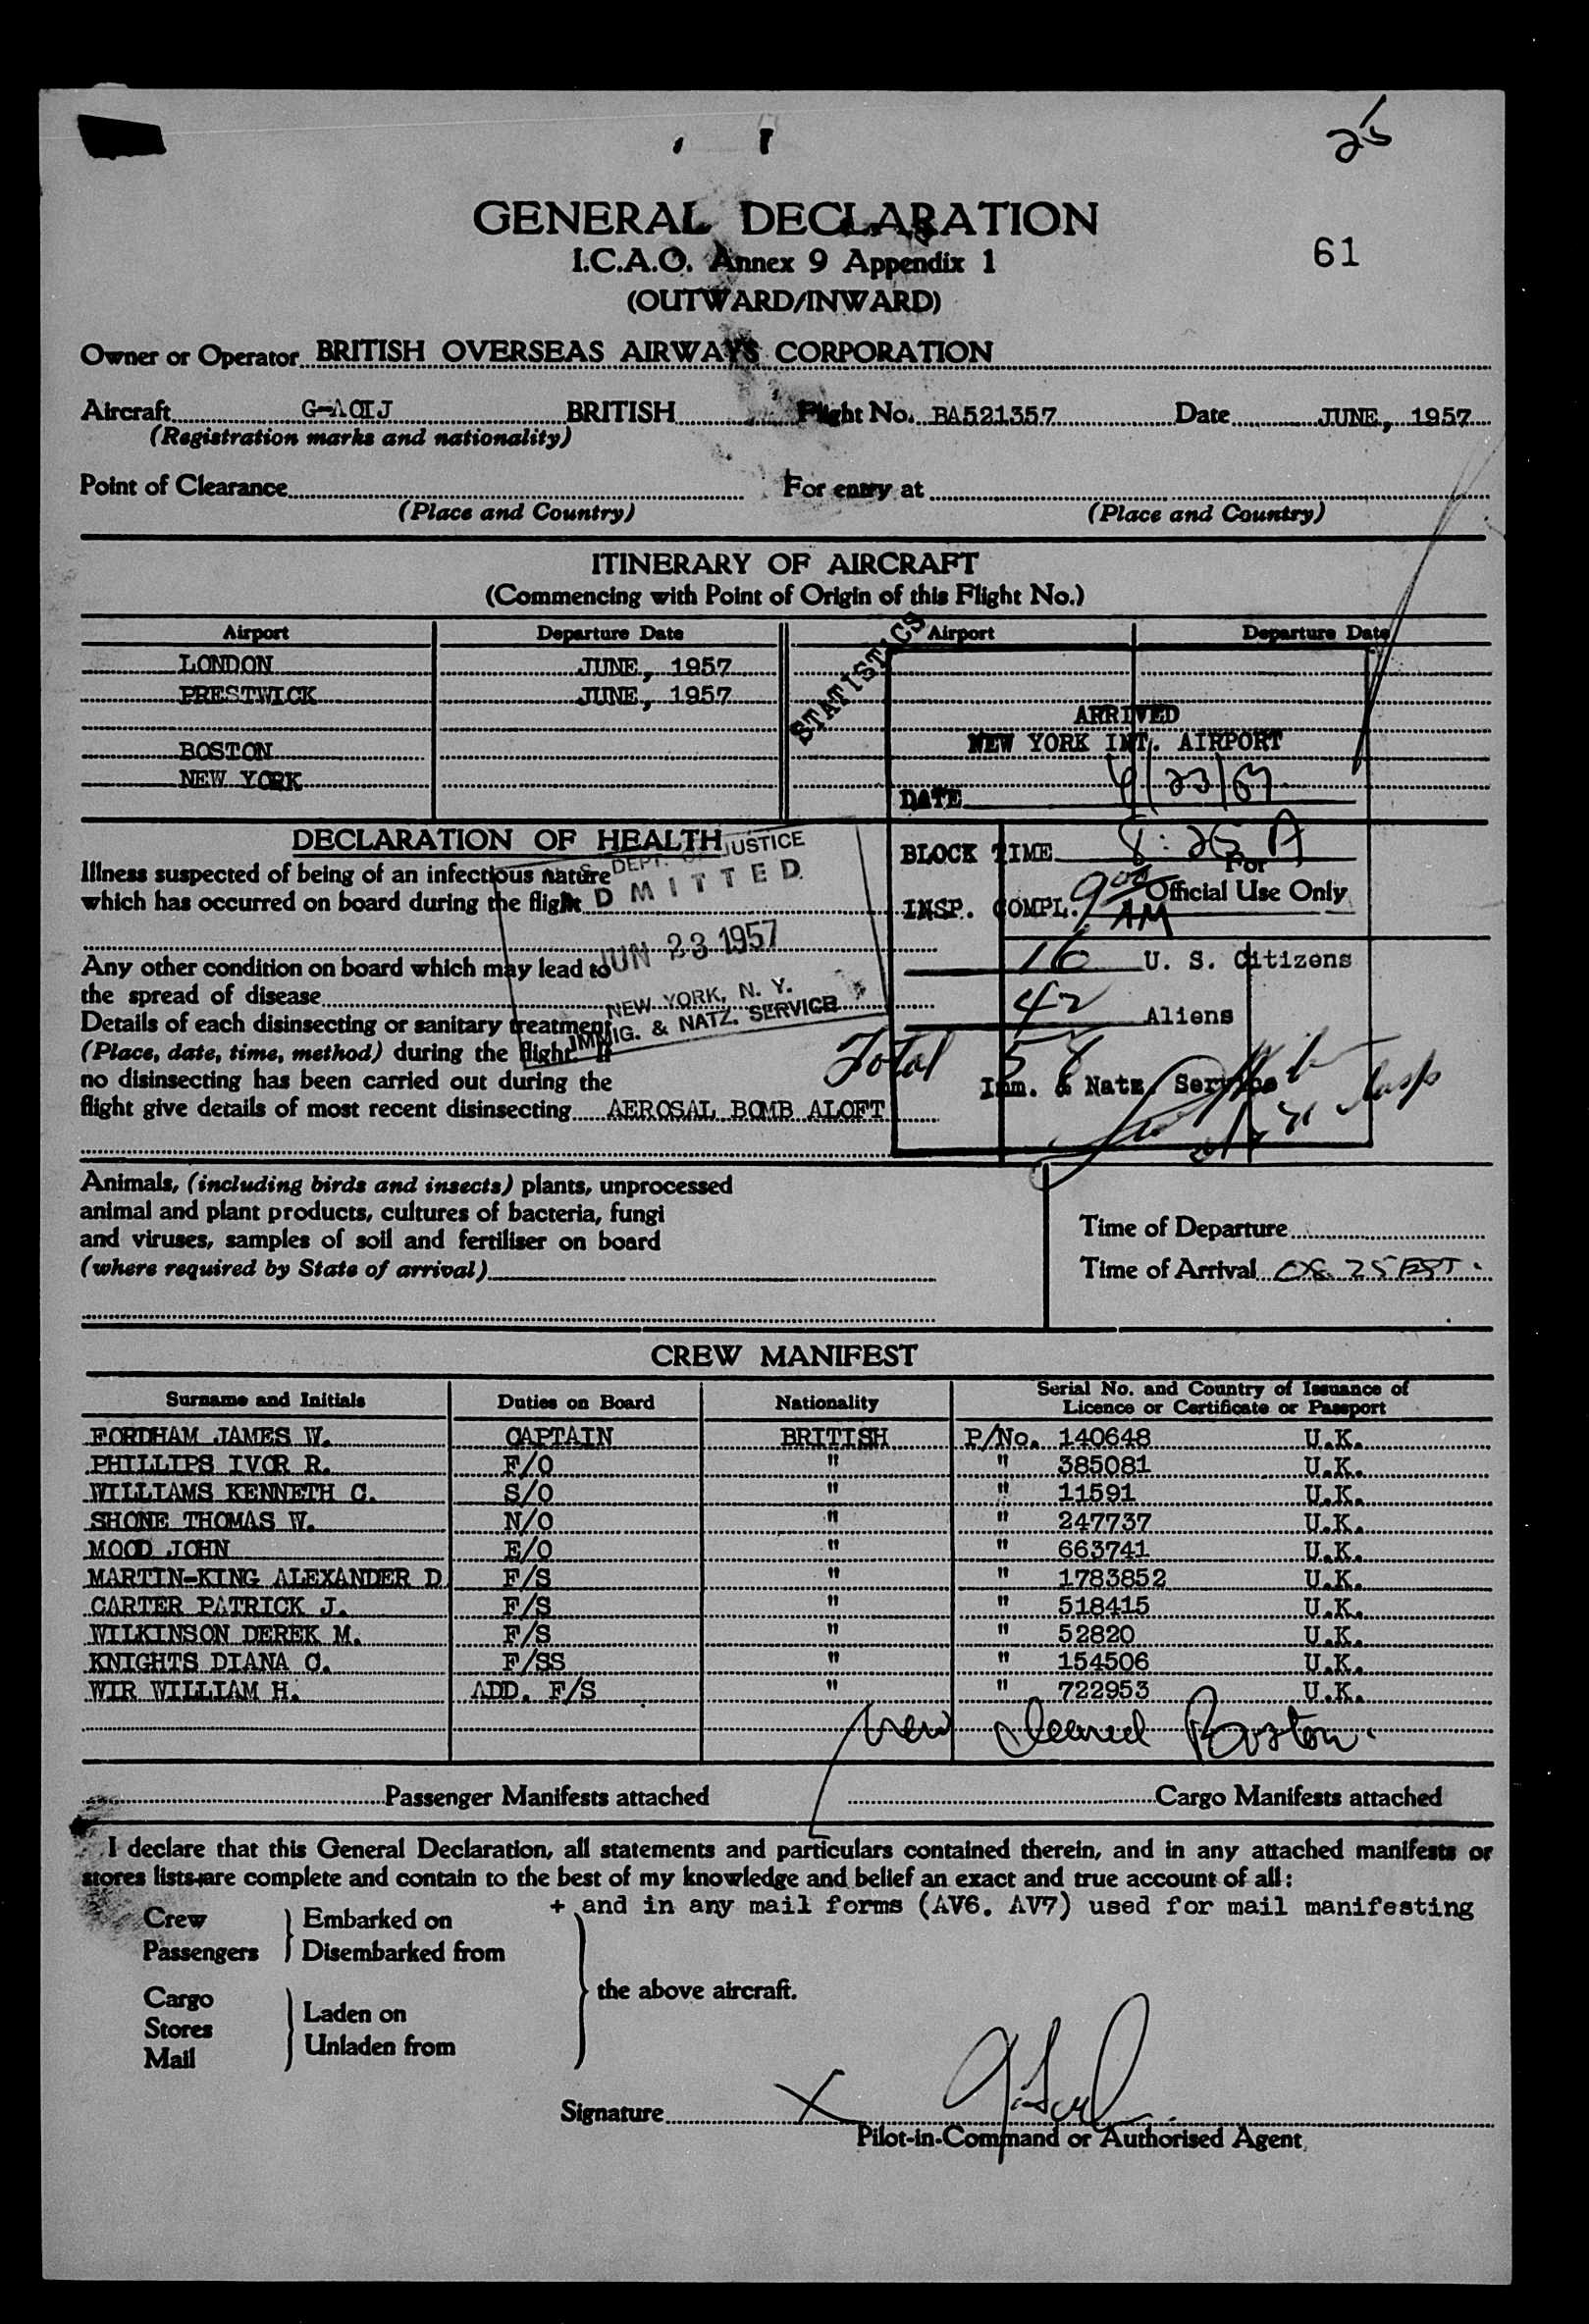 25
GENERAL DECLARATION
I.C.A.O. Annex 9 Appendix 1
61
(OUTWARD/INWARD)
Owner or Operator BRITISH OVERSEAS AIRWAYS CORPORATION
Aircraft G-AOIJ BRITISH Flight No. BA521357 Date JUNE, 1957
(Registration marks and nationality)
Point of Clearance For entry at
(Place and Country) (Place and Country)
ITINERARY OF AIRCRAFT
(Commencing with Point of Origin of this Flight No.)
Airport Departure Date Airport Departure Date
LONDON JUNE, 1957
PRESTWICK JUNE, 1957
BOSTON
NEW YORK
STATISTICS
ARRIVED
NEW YORK INT. AIRPORT
DATE 6/23/57
BLOCK TIME 8:25 A
INSP. COMPL. 9 00 AM
For
Official Use Only
16 U. S. Citizens
42 Aliens
Total 58
Imm. & Natz. Service
DECLARATION OF HEALTH
Illness suspected of being of an infectious nature
which has occurred on board during the flight
Any other condition on board which may lead to
the spread of disease
Details of each disinsecting or sanitary treatment
(Place, date, time, method) during the flight. If
no disinsecting has been carried out during the
flight give details of most recent disinsecting AEROSAL BOMB ALOFT
U.S. DEPT. OF JUSTICE
ADMITTED
JUN 23 1957
NEW YORK, N. Y.
IMMIG. & NATZ. SERVICE
Animals, (including birds and insects) plants, unprocessed
animal and plant products, cultures of bacteria, fungi
and viruses, samples of soil and fertiliser on board
(where required by State of arrival)
Time of Departure
Time of Arrival 08.25 EST.
CREW MANIFEST
Surname and Initials Duties on Board Nationality Serial No. and Country of Issuance of
Licence or Certificate or Passport
FORDHAM JAMES W. CAPTAIN BRITISH P/No. 140648 U.K.
PHILLIPS IVOR R. F/O " " 385081 U.K.
WILLIAMS KENNETH C. S/O " " 11591 U.K.
SHONE THOMAS W. N/O " " 247737 U.K.
MOOD JOHN E/O " " 663741 U.K.
MARTIN-KING ALEXANDER D F/S " " 1783852 U.K.
CARTER PATRICK J. F/S " " 518415 U.K.
WILKINSON DEREK M. F/S " " 52820 U.K.
KNIGHTS DIANA C. F/SS " " 154506 U.K.
WIR WILLIAM H. ADD. F/S " " 722953 U.K.
Crew Cleared Boston.
Passenger Manifests attached Cargo Manifests attached
I declare that this General Declaration, all statements and particulars contained therein, and in any attached manifests or
stores lists+are complete and contain to the best of my knowledge and belief an exact and true account of all:
+ and in any mail forms (AV6. AV7) used for mail manifesting
Crew
Passengers
Embarked on
Disembarked from
Cargo
Stores
Mail
Laden on
Unladen from
the above aircraft.
Signature X
Pilot-in-Command or Authorised Agent